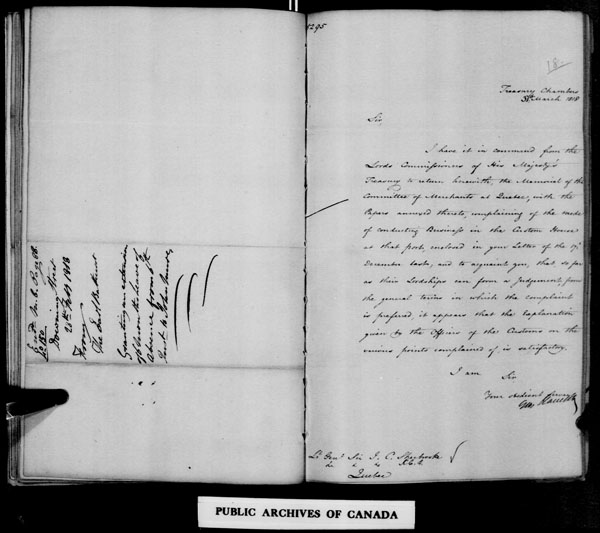 5295
18.
Treasury Chambers
31st March 1818
Sir,
I have it in command from the
Lords Commissioners of His Majesty's
Treasury to return herewith, the Memorial of the
Committee of Merchants at Quebec, with the
Papers annexed thereto, complaining of the mode
of conducting Business in the Custom House
at that port, enclosed in your Letter of the
December last, and to acquaint you, that so far
as their Lordships can form a Judgement from
the general terms in which the complaint
is prefered, it appears that the Explanation
given by the Officers of the Customs on the
various points complained of, is satisfactory.
I am
Sir
Your obedient Servant
Geo Harrison
Lt Genl Sir J. C. Sherbrooke
Quebec
Downing Street
Feby 1818
From
The Earl Bathurst
Granting an extension
of leave of
Absence from
PUBLIC ARCHIVES OF CANADA